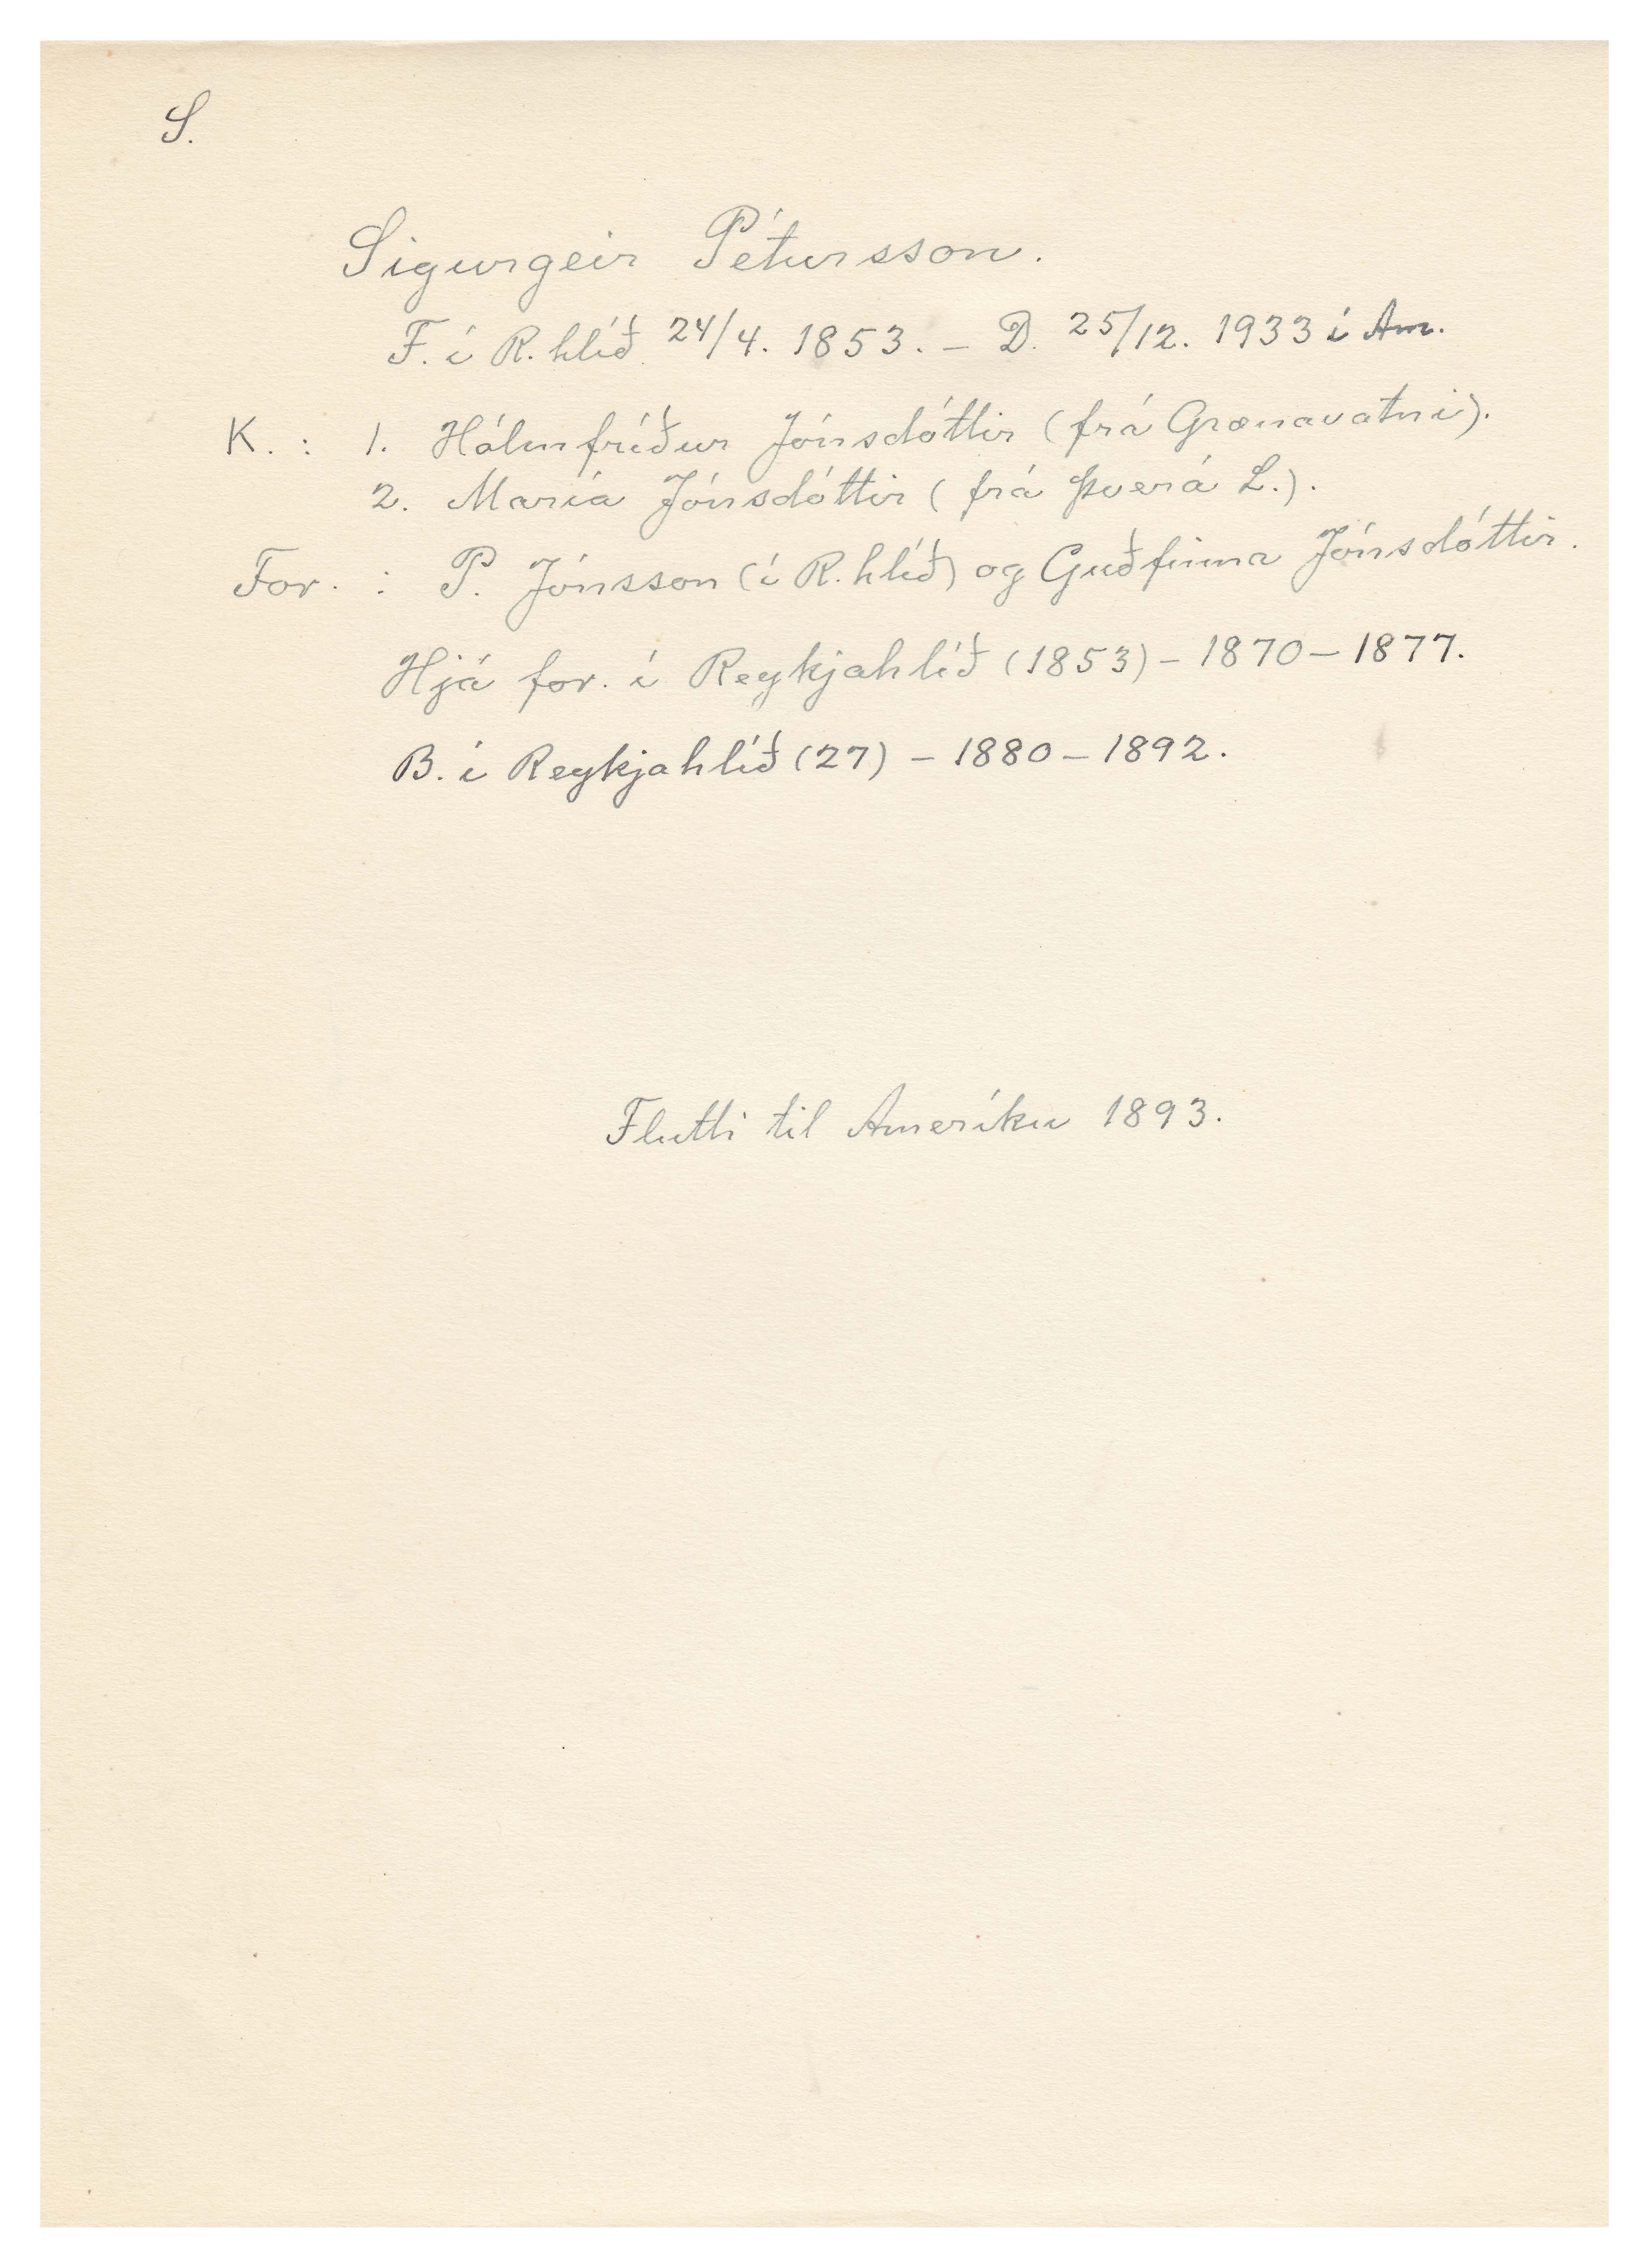 S.
Sigurgeir Pétursson.
F. í R. hlíð 24/4. 1853. – D. 25/12. 1933 í Am.
K. : 1. Hólmfríður Jónsdóttir (frá Grænavatni).
2. María Jónsdóttir (frá Þverá L.).
For. : P. Jónsson (í R. hlíð) og Guðfinna Jónsdóttir.
Hjá for. í Reykjahlíð (1853) – 1870 – 1877.
B. í Reykjahlíð (27) – 1880 – 1892.
Flutti til Ameríku 1893.